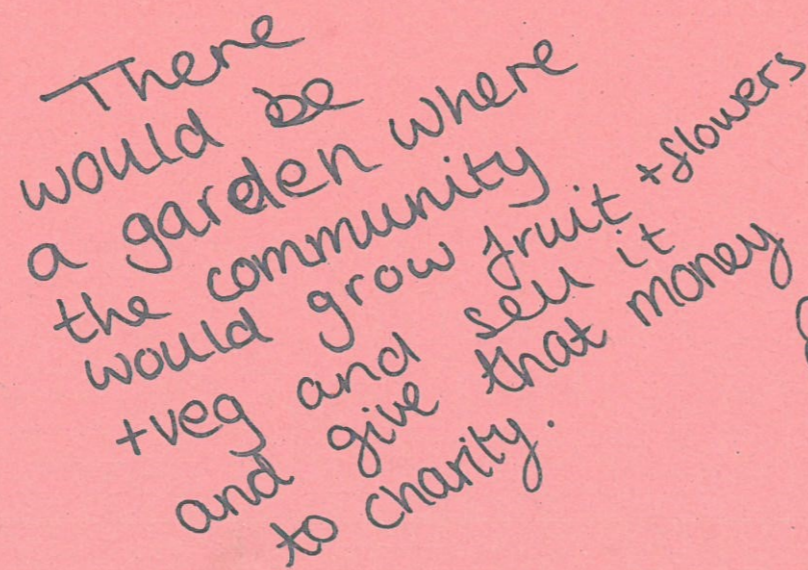 There
would be
a garden where
the community
would grow fruit + flowers
+ veg and sell it
and give that money
to charity.